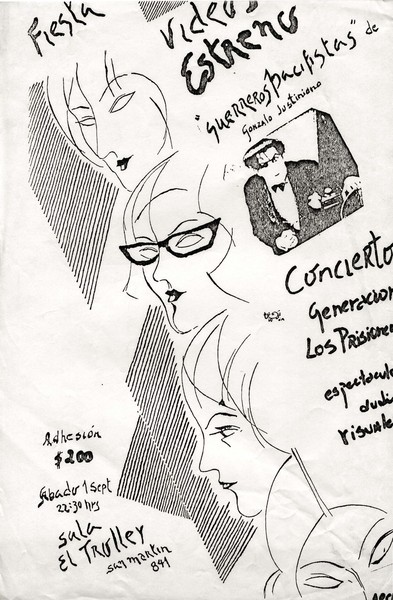 Fiesta
Videos
Estreno
"Guerreros pacifistas" de
Gonzalo Justiniano
Concierto
Generacion
Los Prisione
espectacul
audi
visuale
Adhesión
$200
Sábado 1 sept
22:30 hrs
sala
El Trolley
san martin
841